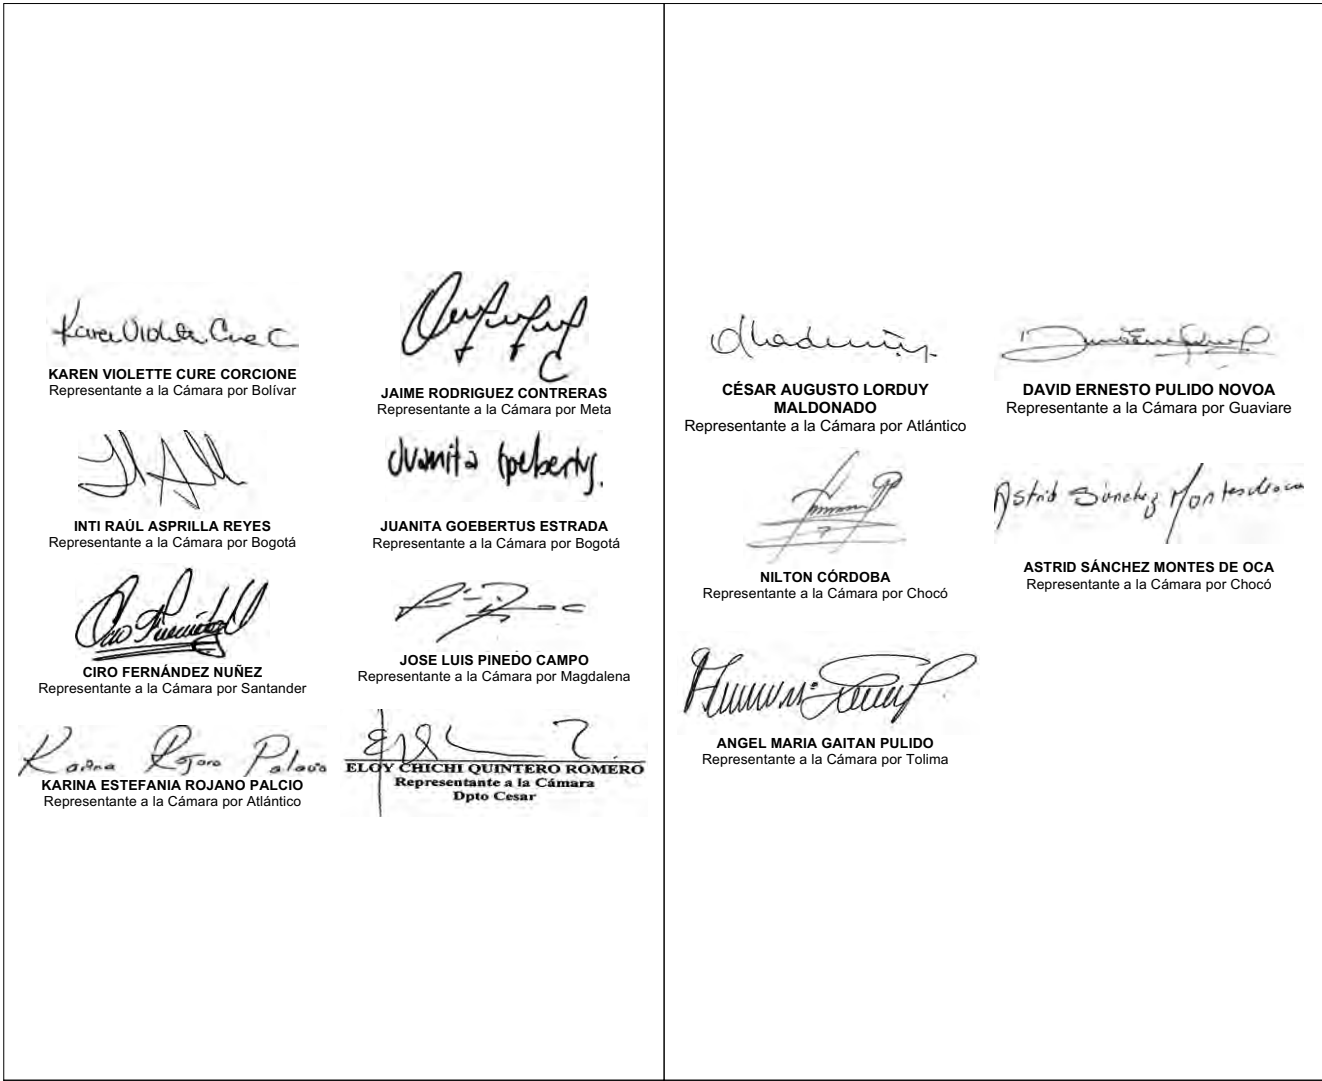 Karen Violette Cure C
KAREN VIOLETTE CURE CORCIONE
Representante a la Cámara por Bolívar
JAIME RODRIGUEZ CONTRERAS
Representante a la Cámara por Meta
INTI RAÚL ASPRILLA REYES
Representante a la Cámara por Bogotá
Juanita Goebertus.
JUANITA GOEBERTUS ESTRADA
Representante a la Cámara por Bogotá
CIRO FERNÁNDEZ NUÑEZ
Representante a la Cámara por Santander
JOSE LUIS PINEDO CAMPO
Representante a la Cámara por Magdalena
Karina Rojano Palacio
KARINA ESTEFANIA ROJANO PALCIO
Representante a la Cámara por Atlántico
ELOY CHICHI QUINTERO ROMERO
Representante a la Cámara
Dpto Cesar
CÉSAR AUGUSTO LORDUY
MALDONADO
Representante a la Cámara por Atlántico
DAVID ERNESTO PULIDO NOVOA
Representante a la Cámara por Guaviare
NILTON CÓRDOBA
Representante a la Cámara por Chocó
Astrid Sánchez Montesdeoca
ASTRID SÁNCHEZ MONTES DE OCA
Representante a la Cámara por Chocó
ANGEL MARIA GAITAN PULIDO
Representante a la Cámara por Tolima